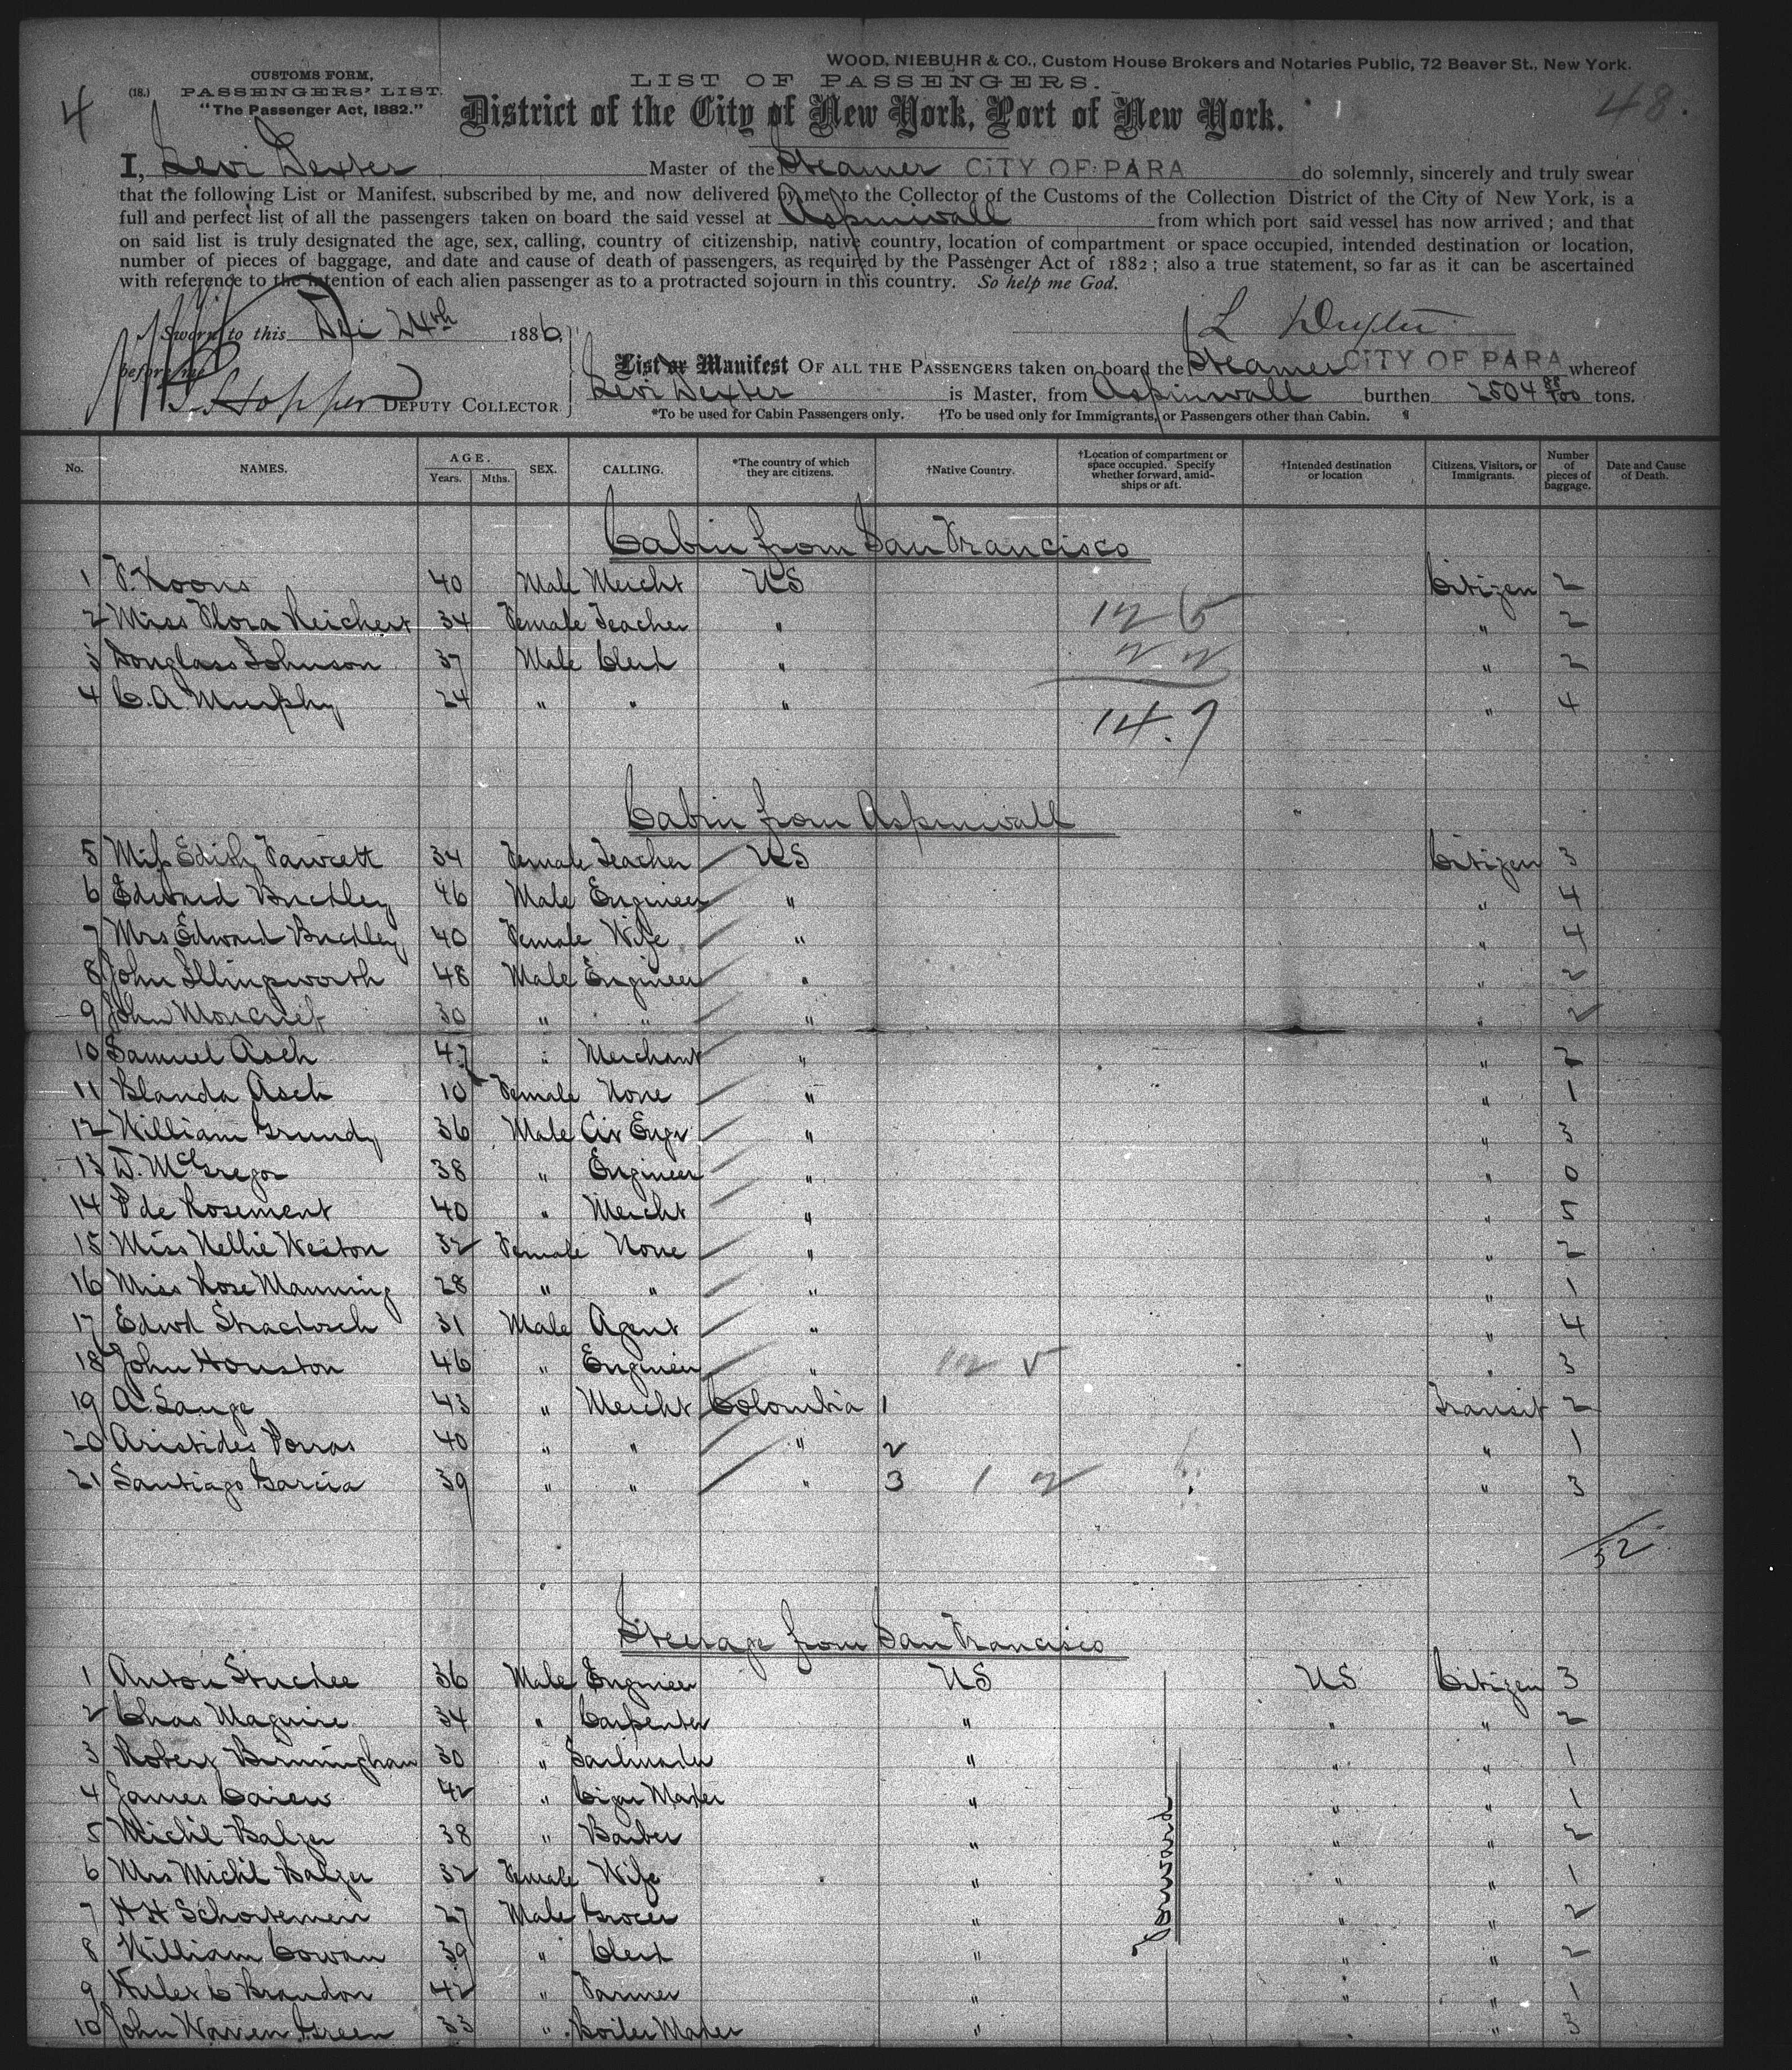 WOOD, NIEBUHR & CO., Custom House Brokers and Notaries Public, 72 Beaver St., New York.
CUSTOMS FORM,
(18.) PASSENGERS' LIST.
"The Passenger Act, 1882."
LIST OF PASSENGERS.
4
District of the City of New York, Port of New York.
48.
I, Levi Dexter Master of the Steamer CITY OF PARA do solemnly, sincerely and truly swear
that the following List or Manifest, subscribed by me, and now delivered by me to the Collector of the Customs of the Collection District of the City of New York, is a
full and perfect list of all the passengers taken on board the said vessel at Aspinwall from which port said vessel has now arrived; and that
on said list is truly designated the age, sex, calling, country of citizenship, native country, location of compartment or space occupied, intended destination or location,
number of pieces of baggage, and date and cause of death of passengers, as required by the Passenger Act of 1882; also a true statement, so far as it can be ascertained
with reference to the intention of each alien passenger as to a protracted sojourn in this country. So help me God.
Sworn to this Dec 24th 1886,
L Dexter
before me
List or Manifest OF ALL THE PASSENGERS taken on board the Steamer CITY OF PARA whereof
Hopper DEPUTY COLLECTOR
Levi Dexter is Master, from Aspinwall burthen 2504 88/100 tons.
*To be used for Cabin Passengers only. †To be used only for Immigrants, or Passengers other than Cabin.
No. NAMES. AGE. Years. Mths. SEX. CALLING. *The country of which they are citizens. †Native Country. †Location of compartment or space occupied. Specify whether forward, amidships or aft. †Intended destination or location Citizens, Visitors, or Immigrants. Number of pieces of baggage. Date and Cause of Death.
Cabin from San Francisco
1 Koons 40 Male Mercht US Citizen 2
2 Miss Flora Reichert 34 Female Teacher " 12 5 " 2
3 Douglass Johnson 37 Male Clerk " 2 2 " 2
4 C. A. Murphy 24 " " " " 4
14.7
Cabin from Aspinwall
5 Miss Edith Fawcett 34 Female Teacher US Citizen 3
6 Edward Buckley 46 Male Engineer " " 4
7 Mrs Edward Buckley 40 Female Wife " " 4
8 John Illingworth 48 Male Engineer " " 2
9 John Moncrief 30 " " " " 2
10 Samuel Asch 47 " Merchant " " 2
11 Blanda Asch 10 Female None " " 1
12 William Grundy 36 Male Civ Engr " " 3
13 D. McGregor 38 " Engineer " " 0
14 P de Rosement 40 " Mercht " " 5
15 Miss Nellie Weston 32 Female None " " 2
16 Miss Rose Manning 28 " " " " 1
17 Edwd 31 Male Agent " " 4
18 John Houston 46 " Engineer " 12 5 " 3
19 A. Lange 43 " Mercht Colombia 1 Transit 2
20 Aristides Porras 40 " " " 2 " 1
21 Santiago Garcia 39 " " " 3 1 2 " 3
52
Steerage from San Francisco
1 Anton 36 Male Engineer US US Citizen 3
2 Chas Maguire 34 " Carpenter " " " 2
3 Robert Birmingham 30 " Sailmaker " " " 1
4 James Carew 42 " Cigar Maker " " " 1
5 Michl Balzer 38 " Barber " " " 2
6 Mrs Michl Balzer 32 Female Wife " " " 1
7 H H 27 Male Grocer " " " 2
8 William Cowan 39 " Clerk " " " 2
9 C Brandon 42 " Farmer " " " 1
10 John Warren Green 33 " Boiler Maker " " 3
Forward